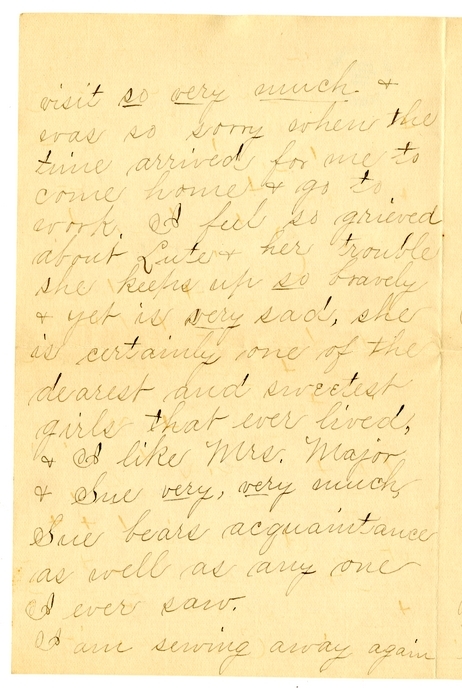 visit so very much &
was so sorry when the
time arrived for me to
come home & go to
work. I feel so grieved
about Lute & her trouble
she keeps up so bravely
& yet is very sad, she
is certainly one of the
dearest and sweetest
girls that ever lived,
& I like Mrs. Major
& Sue very, very much,
Sue bears acquaintance
as well as any one
I ever saw.
I am sewing away again